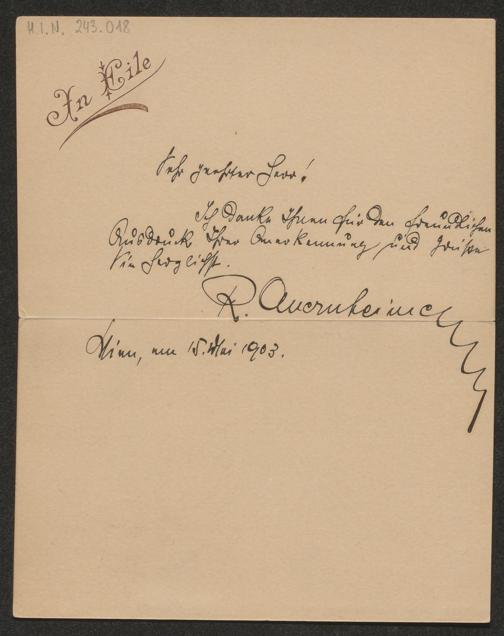 H.I.N. 243.018
In Eile
Sehr geehrter Herr!
Ich danke Ihnen für den freundlichen
Ausdruck Ihrer Anerkennung und grüße
Sie herzlichst.
R. Auernheimer
Wien, am 15. Mai 1903.